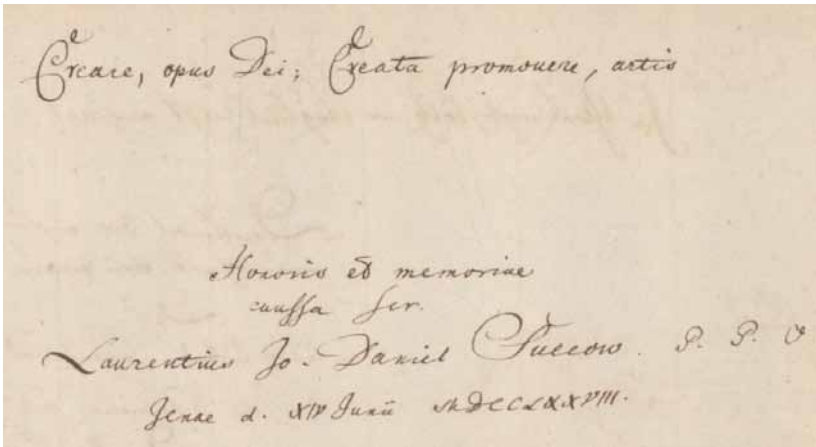 Creare, opus Dei; Creata promouere, artis
Honoris et memoriae
caussa scr.
Laurentius Jo. Daniel Succow. P. P. O
Jenae d. XIV Junii MDCCLXXVIII.